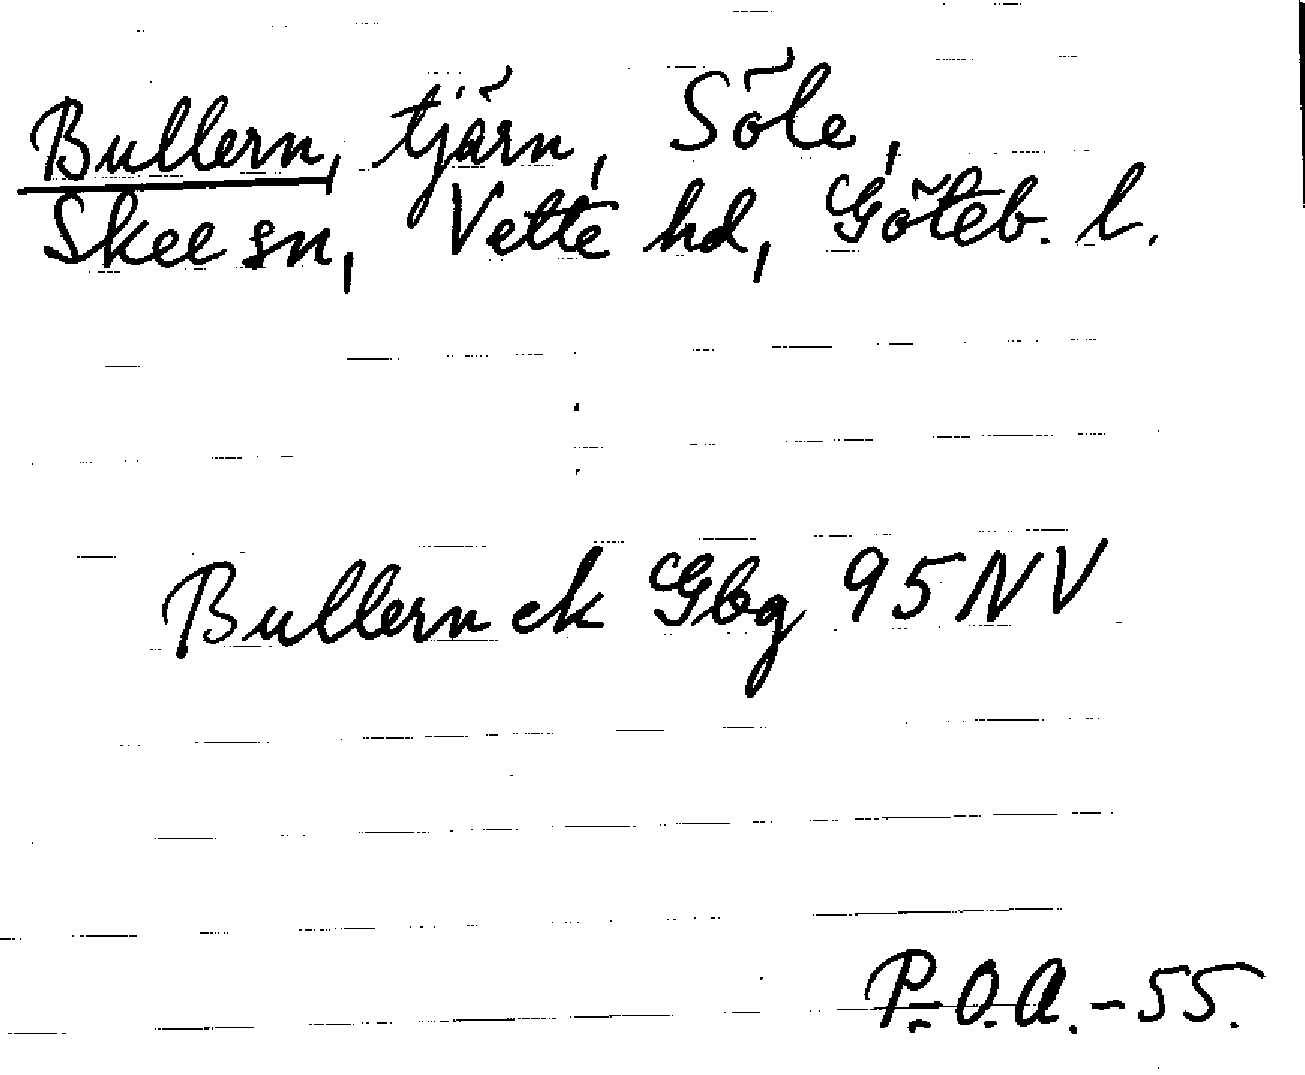 Bullern, tjärn, Söle,
Skee sn, Vette hd, Göteb. l.
Bullern ek Gbg 95 NV
P.O.A.-55.